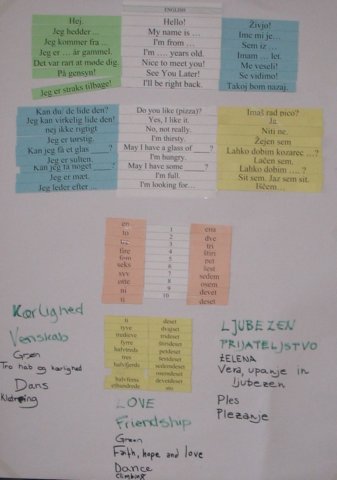 ENGLISH
Hej.
Jeg hedder ...
Jeg kommer fra ...
Jeg er ... år gammel.
Det var rart at møde dig.
På gensyn!
Jeg er straks tilbage!
Hello!
My name is ...
I'm from ...
I'm .... years old.
Nice to meet you!
See You Later!
I'll be right back.
Živjo!
Ime mi je...
Sem iz ...
Imam ... let.
Me veseli!
Se vidimo!
Takoj bom nazaj.
Kan du' de lide den?
Jeg kan virkelig lide den!
nej ikke rigtigt
Jeg er tørstig.
Kan jeg få et glas ____?
Jeg er sulten.
Kan jeg få noget ____?
Jeg er mæt.
Jeg leder efter ...
Do you like (pizza)?
Yes, I like it.
No, not really.
I'm thirsty.
May I have a glass of ____?
I'm hungry.
May I have some ____?
I'm full.
I'm looking for...
Imaš rad pico?
Ja.
Niti ne.
Žejen sem
Lahko dobim kozarec ...?
Lačen sem.
Lahko dobim .... ?
Sit sem. Jaz sem sit.
Iščem...
en
to
tre
fire
fem
seks
syv
otte
ni
ti
1
2
3
4
5
6
7
8
9
10
ena
dve
tri
štiri
pet
šest
sedem
osem
devet
deset
ti
tyve
tredieve
fyrre
halvtreds
tres
halvfjerds
halvfems
deset
dvajset
trideset
štirideset
petdeset
šestdeset
sedemdeset
osemdeset
devetdeset
sto
Kærlighed
Venskab
Grøn
Tro håb og kærlighed
Dans
Klatring
LOVE
Friendship
Green
Faith, hope and love
Dance
Climbing
LJUBEZEN
PRIJATELJSTVO
ZELENA
Vera, upanje in
ljubezen
Ples
Plezanje